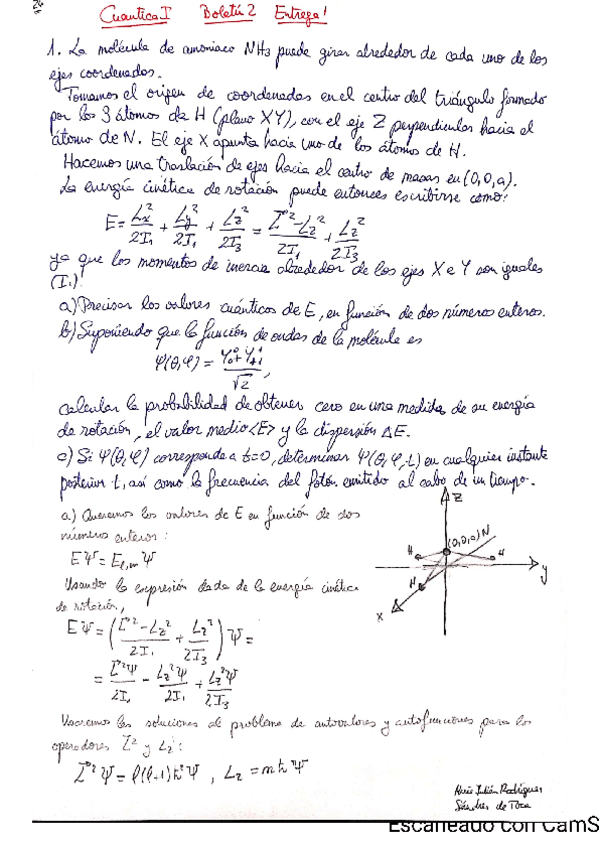 Cuántica I Boletín 2 Entrega 1
1. La molécula de amoniaco NH3 puede girar alrededor de cada uno de los
ejes coordenados.
Tomamos el origen de coordenadas en el centro del triángulo formado
por los 3 átomos de H (plano XY), con el eje Z perpendicular hacia el
átomo de N. El eje X apunta hacia uno de los átomos de H.
Hacemos una traslación de ejes hacia el centro de masas en (0,0,a).
La energía cinética de rotación puede entonces escribirse como:
E = Lx²/2I₁ + Ly²/2I₁ + Lz²/2I₃ = (L⃗² - Lz²)/2I₁ + Lz²/2I₃
ya que los momentos de inercia alrededor de los ejes X e Y son iguales
(I₁)
a) Precisar los valores cuánticos de E, en función de dos números enteros.
b) Suponiendo que la función de ondas de la molécula es
Ψ(θ,φ) = (Y₀⁰ + Y₊₁¹)/√2,
calcular la probabilidad de obtener cero en una medida de su energía
de rotación, el valor medio <E> y la dispersión ΔE.
c) Si Ψ(θ,φ) corresponde a t=0, determinar Ψ(θ,φ,t) en cualquier instante
posterior t, así como la frecuencia del fotón emitido al cabo de un tiempo.
a) Queremos los valores de E en función de dos
números enteros:
EΨ = E_{l,m} Ψ
Usando la expresión dada de la energía cinética
de rotación,
EΨ = ((L⃗² - Lz²)/2I₁ + Lz²/2I₃) Ψ =
= L⃗²Ψ/2I₁ - Lz²Ψ/2I₁ + Lz²Ψ/2I₃
Z
(0,0,a) N
H
H
H
y
x
las soluciones al problema de autovalores y autofunciones para los
operadores L² y Lz:
L⃗²Ψ = l(l+1)ħ²Ψ, Lz = mħΨ
Julián Rodríguez
Sánchez de Toca
Escaneado con CamS